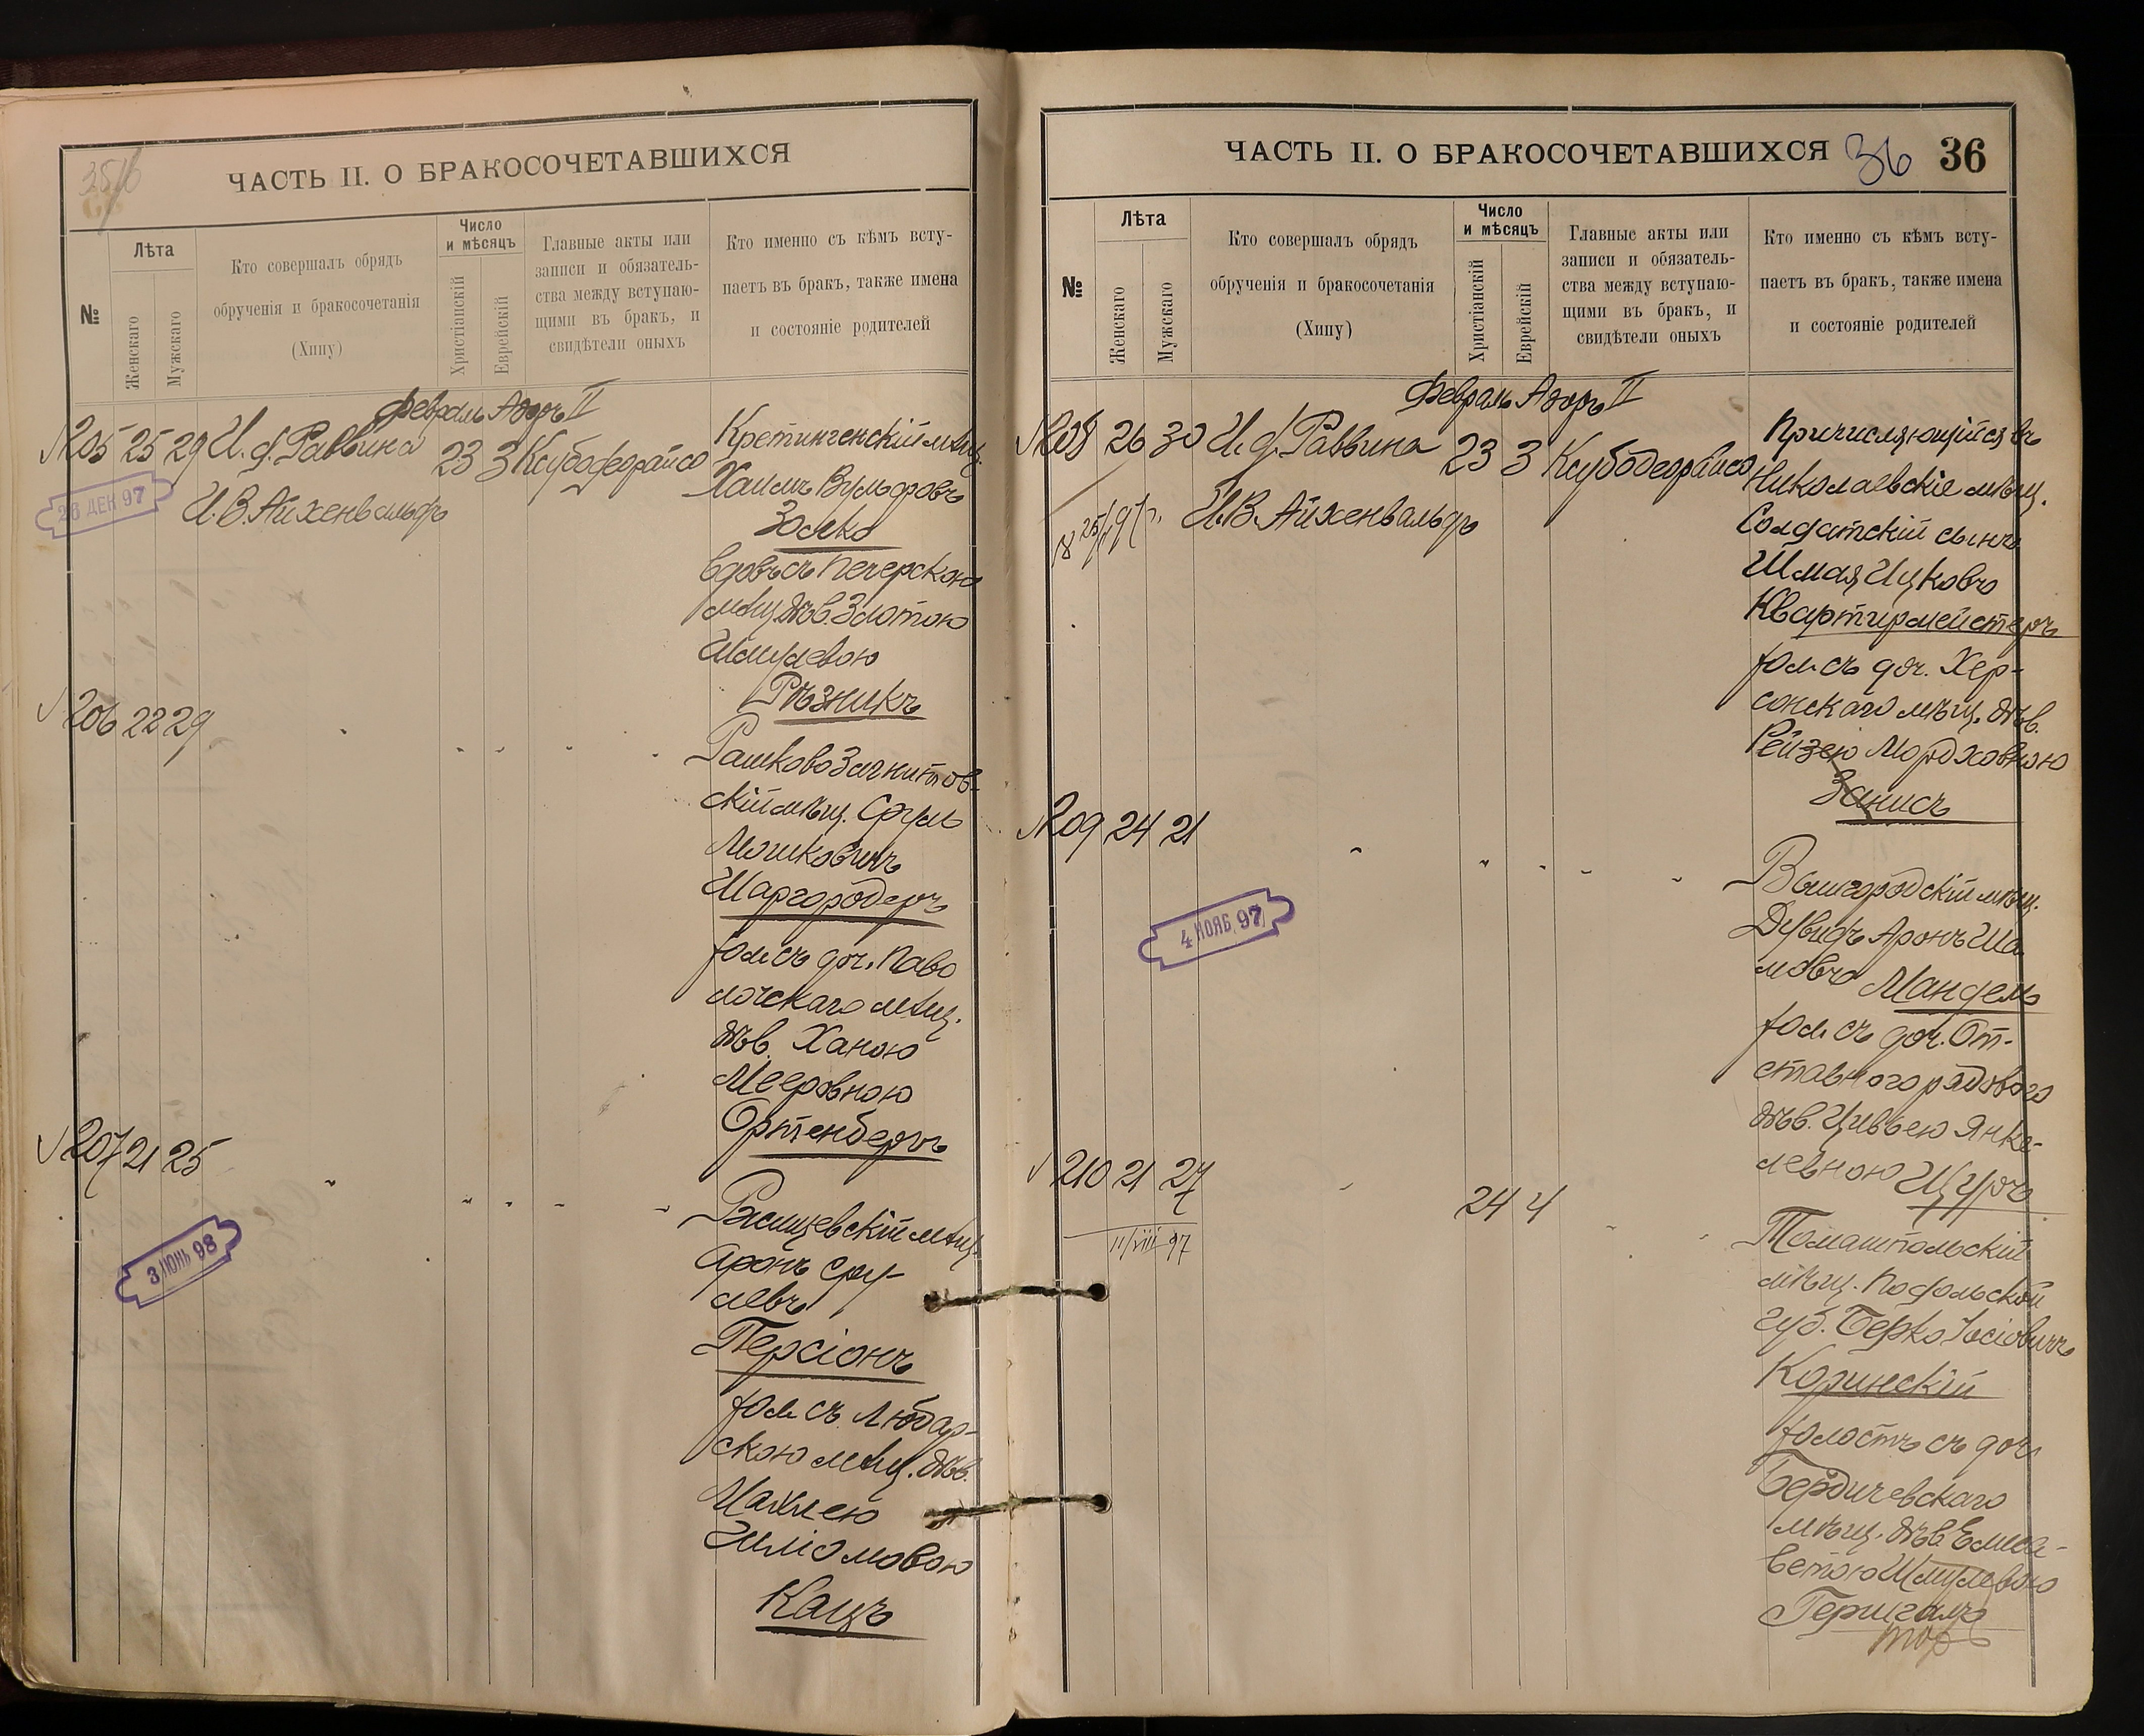 ЧАСТЬ II. О БРАКОСОЧЕТАВШИХСЯ
№
Лѣта
Женскаго
Мужскаго
Кто совершалъ обрядъ
обрученія и бракосочетанія
(Хипу)
Число
и мѣсяцъ
Христіанскій
Еврейскій
Главные акты или
записи и обязатель-
ства между вступаю-
щими въ бракъ, и
свидѣтели оныхъ
Кто именно съ кѣмъ всту-
паетъ въ бракъ, также имена
и состояніе родителей
Февраль Адаръ II
205 25 29 И. д. Раввина 23 3 Ксубодеорайсо
28 ДЕК 97
И. В. Айхенвальдъ
Кретингенскій мѣщ.
Хаимъ Вульфовъ
Золко
вдовъ съ Печерскою
мѣщ. дѣв. Златою
Шмулевою
Рѣзникъ
206 22 29
Рашково
скій мѣщ. Сруль
Мошковичъ
Шаргородеръ
хол. съ доч. Паво
лочскаго мѣщ.
дѣв. Ханою
Мееровною
Ортенбергъ
207 21 25
3 ИЮНЬ 98
мѣщ.
Аронъ Сру-
левъ
Персіонъ
хол. съ Любар-
скою мѣщ. дѣв.
Шліомовою
Кацъ
ЧАСТЬ II. О БРАКОСОЧЕТАВШИХСЯ 36 36
№
Лѣта
Женскаго
Мужскаго
Кто совершалъ обрядъ
обрученія и бракосочетанія
(Хипу)
Число
и мѣсяцъ
Христіанскій
Еврейскій
Главные акты или
записи и обязатель-
ства между вступаю-
щими въ бракъ, и
свидѣтели оныхъ
Кто именно съ кѣмъ всту-
паетъ въ бракъ, также имена
и состояніе родителей
Февраль Адаръ II
208 26 30 И. д. Раввина 23 3 Ксубодеорайсо
И. В. Айхенвальдъ
Причисляющійся въ
Николаевскіе мѣщ.
Солдатскій сынъ
Шмая Ицковъ
Квартирмейстеръ
хол. съ доч. Хер-
сонскаго мѣщ. дѣв.
Рейзею Мордховною
Занисъ
209 24 21
4 НОЯБ 97
Вышгородскій мѣщ.
Дувидъ Аронъ Ша
мовъ Мандель
хол. съ доч. От-
ставного рядового
дѣв. Цивьею Янке-
левною Щуръ
210 21 27 24 4
11/VIII 97
Томашпольскій
мѣщ. Подольской
губ. Берко Іосіовичъ
Коринскій
холостъ съ доч.
Бердичевскаго
мѣщ. дѣв. Елиса-
ветою Шмулевою